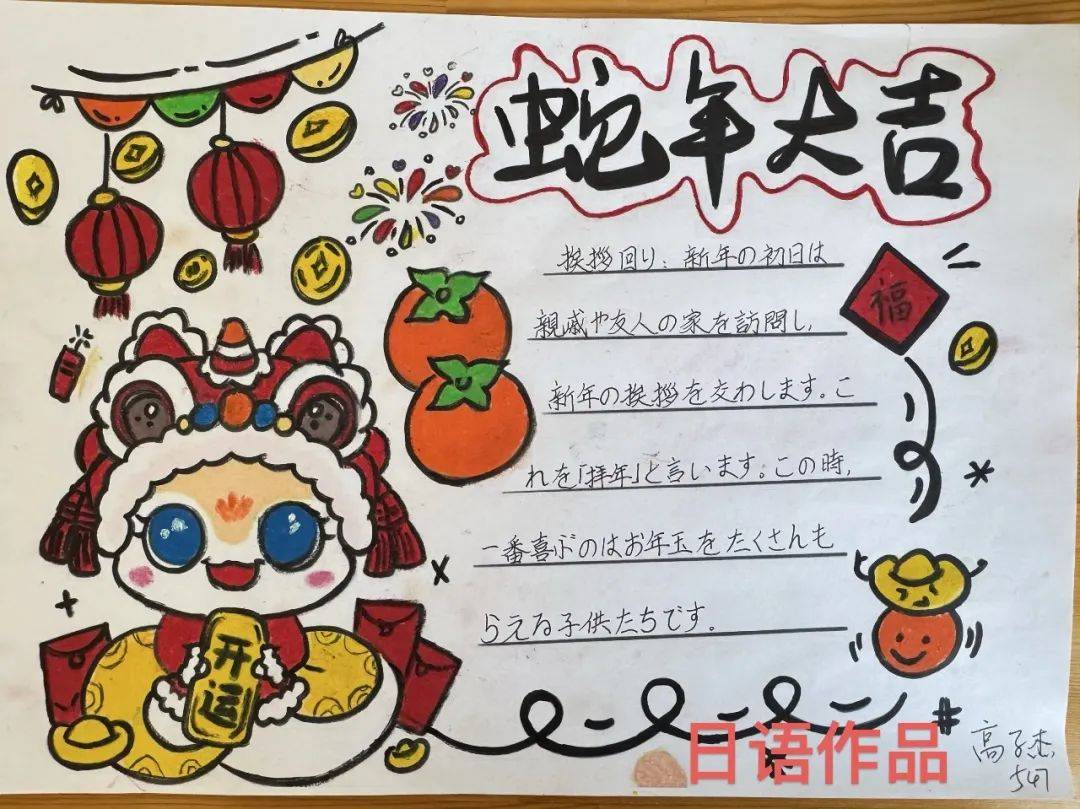 蛇年大吉
挨拶回り：新年の初日は
親戚や友人の家を訪問し、
新年の挨拶を交わします。こ
れを「拝年」と言います。この時、
一番喜ぶのはお年玉をたくさんも
らえる子供たちです。
福
开运
日语作品
高子杰
547